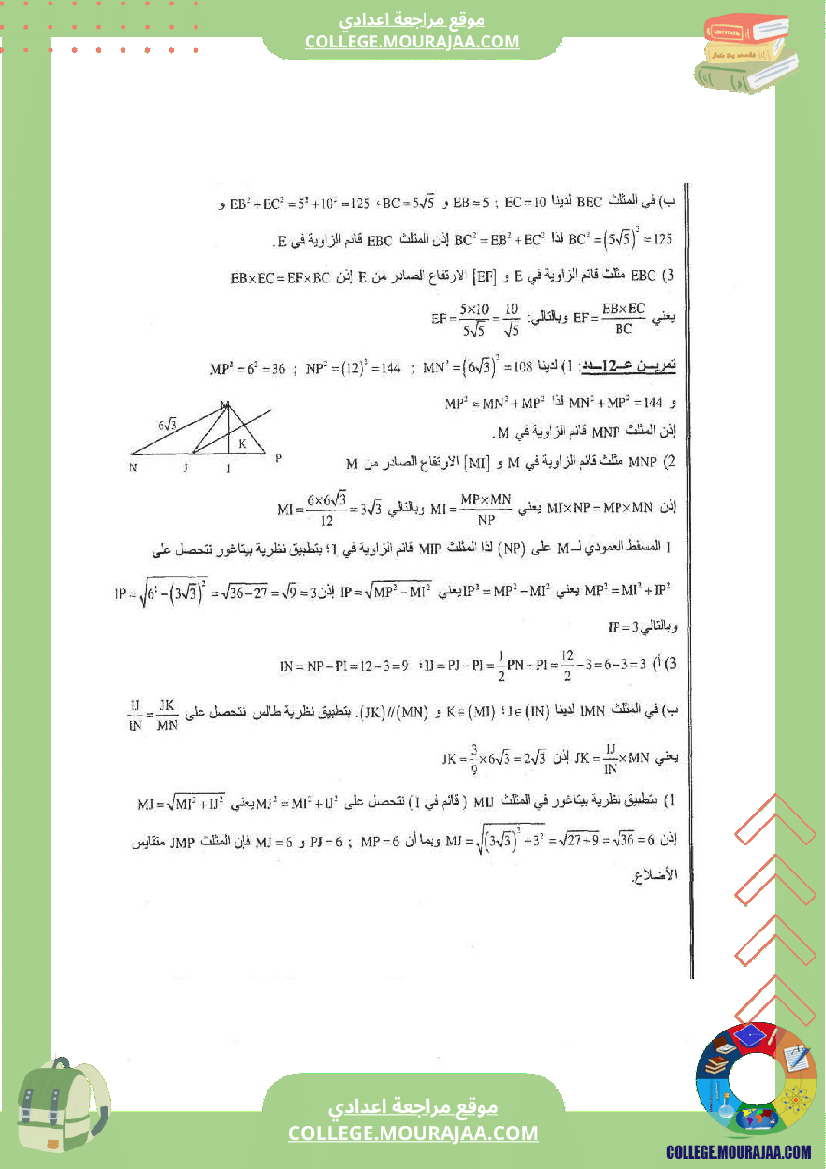 موقع مراجعة اعدادي
COLLEGE.MOURAJAA.COM
ب) في المثلث BEC لدينا EB = 5 ; EC = 10 و BC = 5√5 ، EB² + EC² = 5² + 10² = 125 و
BC² = (5√5)² = 125 لذا BC² = EB² + EC² إذن المثلث EBC قائم الزاوية في E .
3) EBC مثلث قائم الزاوية في E و [EF] الارتفاع الصادر من E إذن EB×EC = EF×BC
يعني EF = EB×EC/BC وبالتالي: EF = 5×10/5√5 = 10/√5
تمريــن عــ12ــدد: 1) لدينا MN² = (6√3)² = 108 ; NP² = (12)² = 144 ; MP² = 6² = 36
و MN² + MP² = 144 لذا MP² = MN² + MP²
إذن المثلث MNP قائم الزاوية في M.
2) MNP مثلث قائم الزاوية في M و [MI] الارتفاع الصادر من M
M
6√3
K
N J I P
إذن MI×NP = MP×MN يعني MI = MP×MN/NP وبالتالي MI = 6×6√3/12 = 3√3
I المسقط العمودي لــM على (NP) لذا المثلث MIP قائم الزاوية في I؛ بتطبيق نظرية بيتاغور نتحصل على
MP² = MI² + IP² يعني IP² = MP² − MI² يعني IP = √MP² − MI² إذن IP = √6² − (3√3)² = √36−27 = √9 = 3
وبالتالي IP = 3
3) أ) IJ = PJ − PI = 1/2 PN − PI = 12/2 − 3 = 6 − 3 = 3 ؛ IN = NP − PI = 12 − 3 = 9
ب) في المثلث IMN لدينا J∈(IN) ؛ K∈(MI) و (JK)//(MN). بتطبيق نظرية طالس نتحصل على IJ/IN = JK/MN
يعني JK = IJ/IN × MN إذن JK = 3/9 × 6√3 = 2√3
1) بتطبيق نظرية بيتاغور في المثلث MIJ ( قائم في I ) نتحصل على MJ² = MI² + IJ² يعني MJ = √MI² + IJ²
إذن MJ = √(3√3)² + 3² = √27+9 = √36 = 6 وبما أن MP = 6 ; PJ = 6 و MJ = 6 فإن المثلث JMP متقايس
الأضلاع.
موقع مراجعة اعدادي
COLLEGE.MOURAJAA.COM
COLLEGE.MOURAJAA.COM